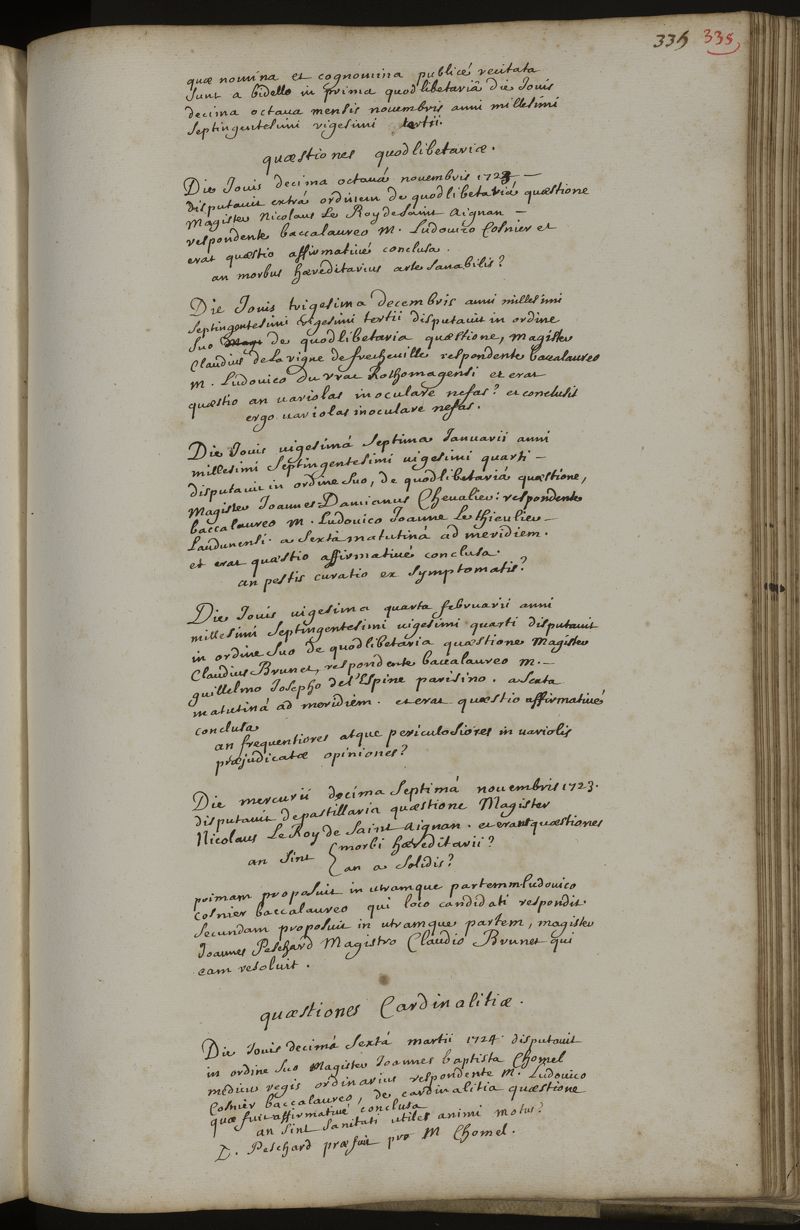 335 335
quæ nomina et cognomina publicé recitata
sunt a bidello in prima quodlibetariâ die Jovis
decima octava mensis novembris anni millesimi
septingentesimi vigesimi tertii.
quæstiones quodlibetariæ.
Die Jovis decima octavâ novembris 1723 —
disputavit extrà ordinem de quodlibetariâ quæstione
Magister Nicolaus Le Roy de Saint Aignan —
respondente baccalaureo M. Ludovico Cosnier et
erat quæstio affirmativé conclusa.
an morbus hæreditarius arte sanabilis?
Die Jovis trigesima decembris anni millesimi
septingentesimi vigesimi tertii disputavit in ordine
suo de quodlibetaria quæstione, magister
Claudius de La vigne de frecheville respondente baccalaureo
M. Ludovico du vrac Rothomagensi et erat
quæstio an variolas inoculare nefas? et conclusit
ergo variolas inoculare nefas.
Die Jovis vigesimâ septima Januarii anni
millesimi septingentesimi vigesimi quarti —
disputavit in ordine suo, de quodlibetariâ quæstione,
Magister Joannes-Damianus Chevalier: respondente
baccalaureo M. Ludovico Joanne Le thieulier —
Laudunensi. a sextâ matutinâ ad meridiem.
et erat quæstio affirmativé conclusa.
an pestis curatio ex symptomatis?
Die Jovis vigesima quarta februarii anni
millesimi septingentesimi vigesimi quarti disputavit
in ordine suo de quodlibetaria quæstione Magister
Claudius Brunet, respondente baccalaureo M. —
guillelmo Josepho de l'Espine parisino. a sexta
matutinâ ad meridiem. et erat quæstio affirmativé
conclusa
an frequentiores atque periculosiores in variolis
præjudicatæ opiniones?
Die mercurii decima septimâ novembris 1723.
disputavit de pastillaria quæstione Magister
Nicolaus Le Roy de Saint Aignan. et erant quæstiones
an sint { morbi hæreditarii?
an a solidis?
primam proposuit in utramque partem M Ludovico
Cosnier baccalaureo qui loco candidati respondit.
Secundam proposuit in utramque partem, magister
Joannes Peschard Magistro Claudio Brunet qui
eam resoluit.
quæstiones Cardinalitiæ.
Die Jovis decimâ sextâ martii 1724 disputavit
in ordine suo Magister Joannes baptista Chomel
medicus regis ordinarius respondente M. Ludovico
Cosnier baccalaureo, de cardinalitia quæstione
quæ fuit affirmativé conclusa
an sint sanitati utiles animi motus?
D. Peschard præfuit pro M Chomel.